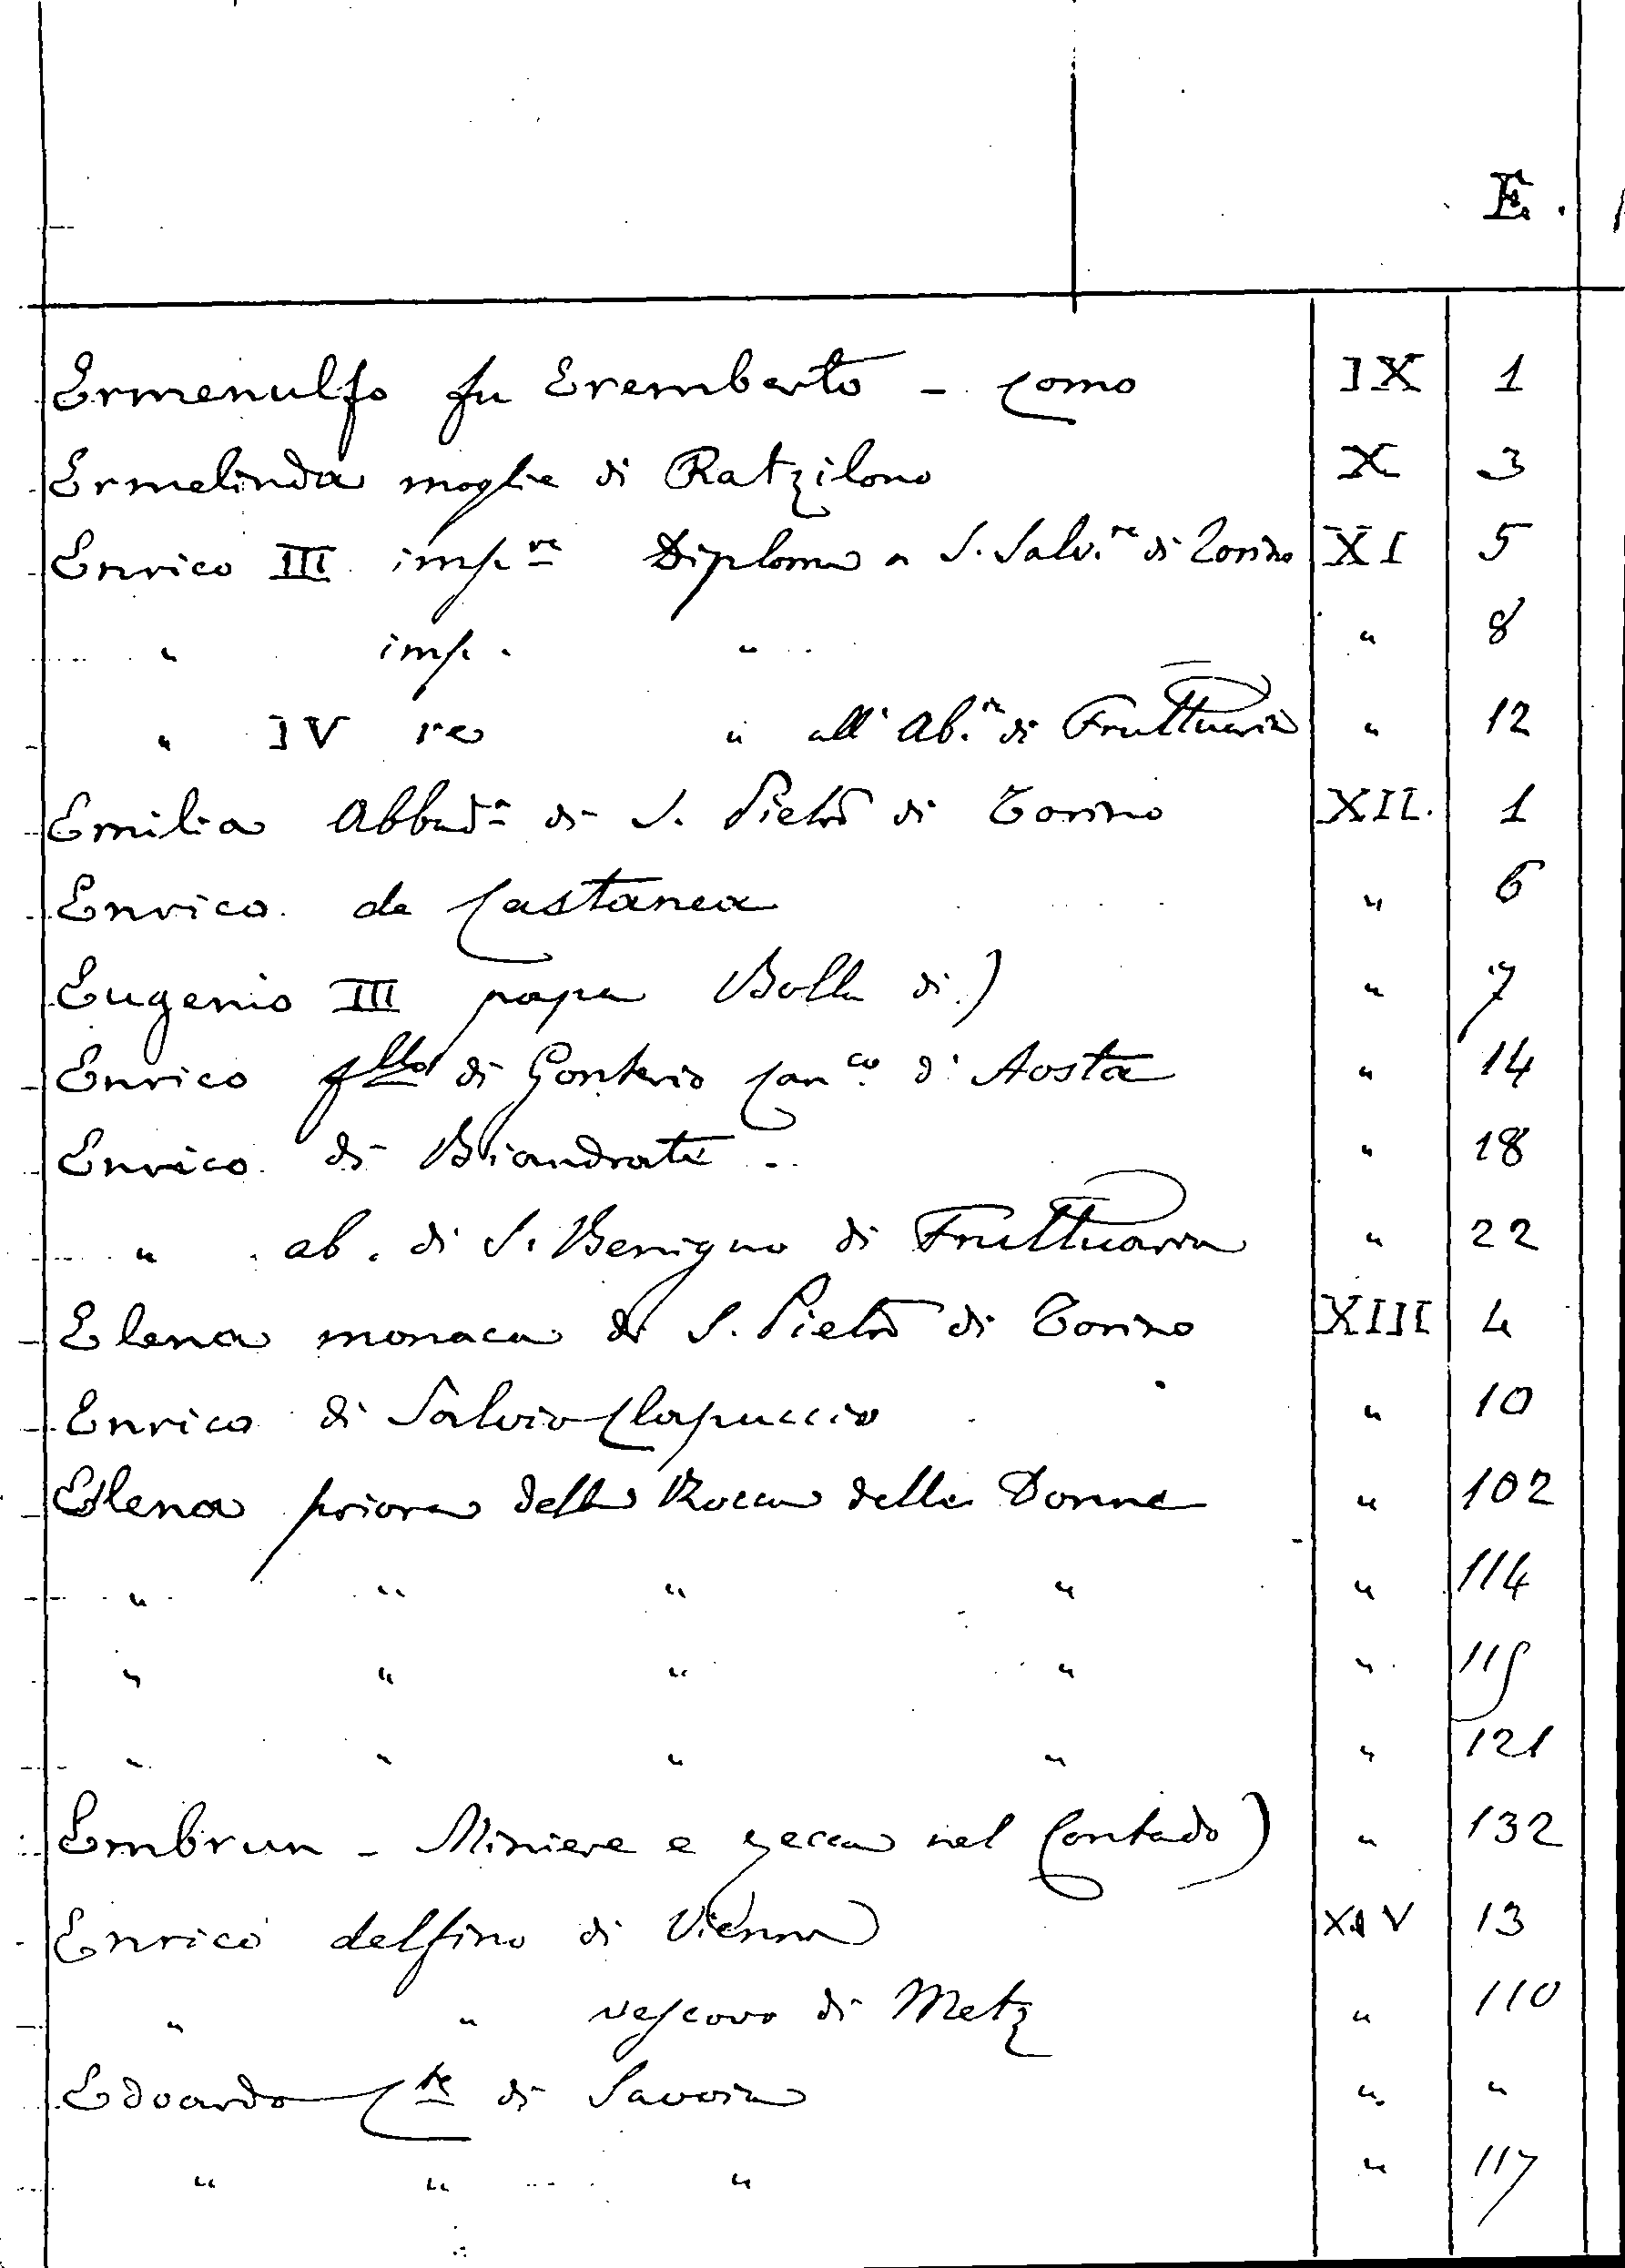 E.
Ermenulfo fu Eremberto - Como IX 1
Ermelinda moglie di Ratzilono X 3
Enrico III imp.re Diploma a S. Salv.re di Torino XI 5
" imp. " " 8
" IV re " all' Ab.a di Fruttuaria " 12
Emilia Abbad.a di S. Pietro di Torino XII. 1
Enrico de Castanea " 6
Eugenio III papa Bolla di) " 7
Enrico fllo di Gonterio Can.co d'Aosta " 14
Enrico di Biandrate " 18
" ab. di S. Benigno di Fruttuaria " 22
Elena monaca di S. Pietro di Torino XIII 4
Enrico di Salvio Clapuccio " 10
Elena priora della Rocca delle Donne " 102
" " " " " 114
" " " " " 115
" " " " " 121
Embrun - Miniere e zecca nel Contado) " 132
Enrico delfino di Vienna XIV 13
" " vescovo di Metz " 110
Edoardo C.te di Savoia " "
" " " " 117